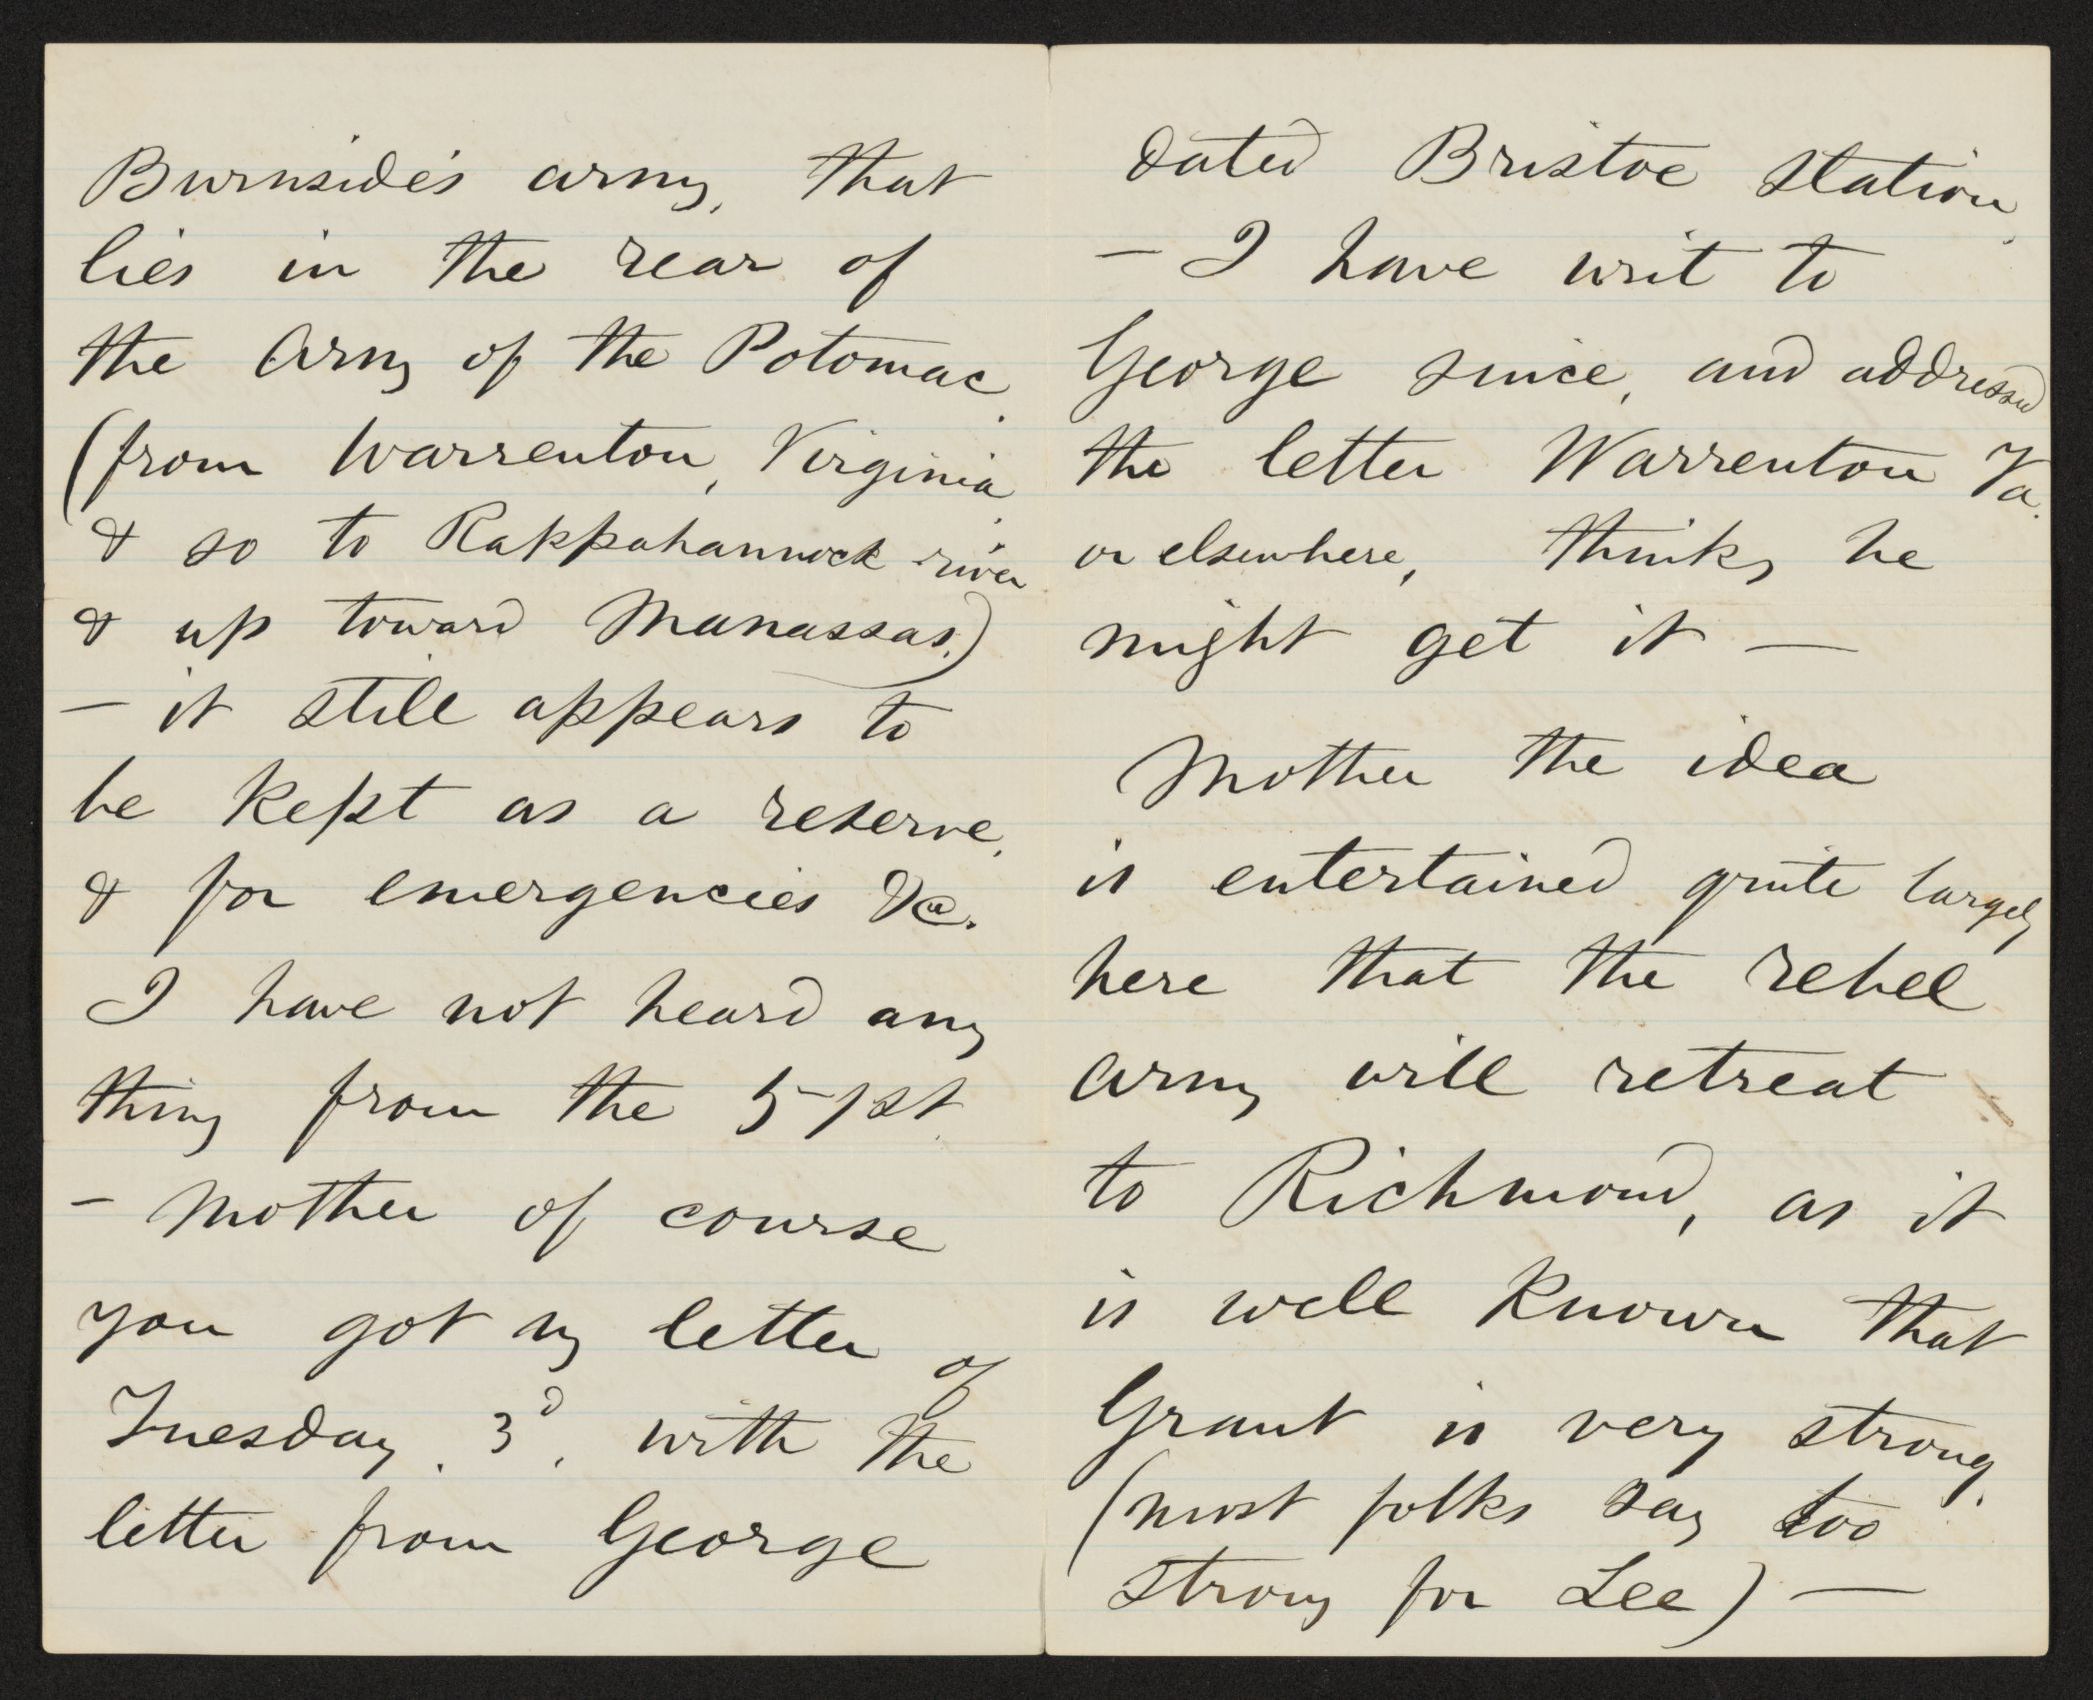 Burnside's army, that
lies in the rear of
the Army of the Potomac.
(from Warrenton, Virginia,
& so to Rappahannock river
& up toward Manassas.)
– it still appears to
be kept as a reserve,
& for emergencies &c.
I have not heard any
thing from the 51st.
– Mother of course
you got my letter of
Tuesday, 3d, with the
letter from George
dated Bristoe station,
– I have writ to
George since, and addressed
the letter Warrenton Va.
or elsewhere, thinkg he
might get it —
Mother the idea
is entertained quite largely
here that the rebel
army will retreat
to Richmond, as it
is well known that
Grant is very strong,
(most folks say too
strong for Lee) —